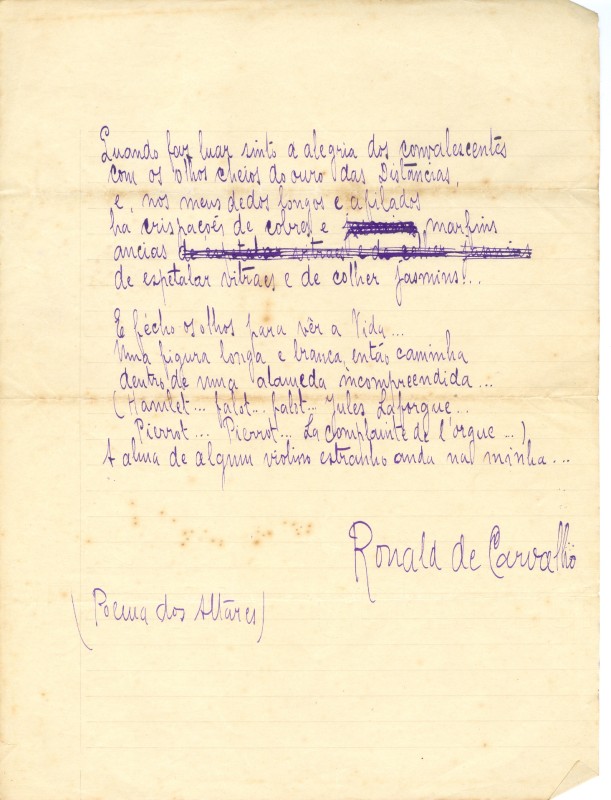 Quando faz luar sinto a alegria dos convalescentes
com os olhos cheios do ouro das Distancias,
e, nos meus dedos longos e afilados
ha crispações de cobres e marfins
ancias de espetalar vitraes e de colher jasmins
de espetalar vitraes e de colher jasmins!..
E fécho os olhos para vêr a Vida...
Uma figura longa e branca, então caminha
dentro de uma alameda incompreendida...
(Hamlet... falot... falot... Jules Laforgue...
Pierrot... Pierrot... La complainte de l'orgue...)
A alma de algum violino estranho anda na minha...
Ronald de Carvalho
(Poema dos Altares)